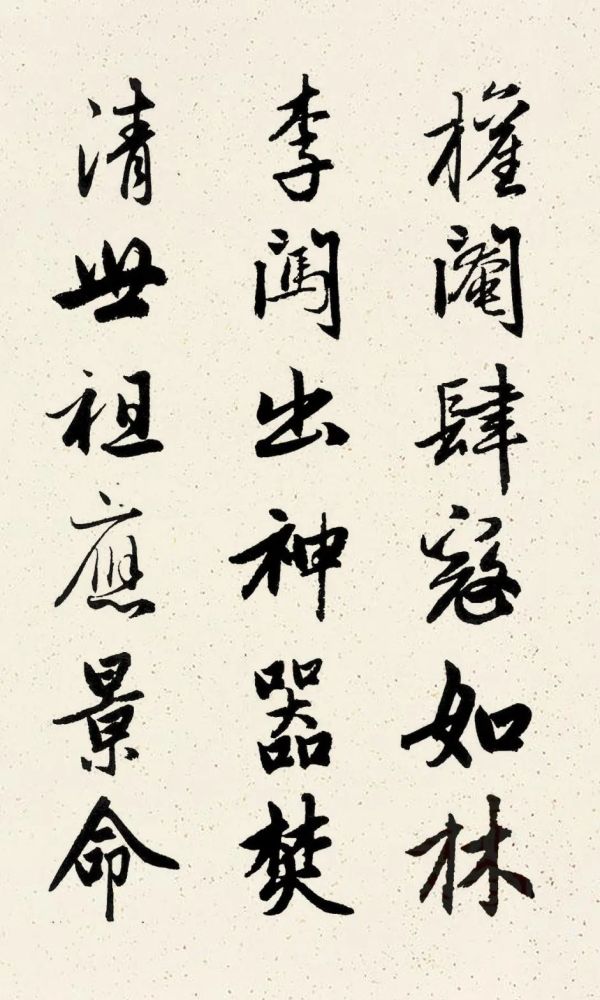 權閹肆寇如林
李闖出神器焚
清世祖應景命